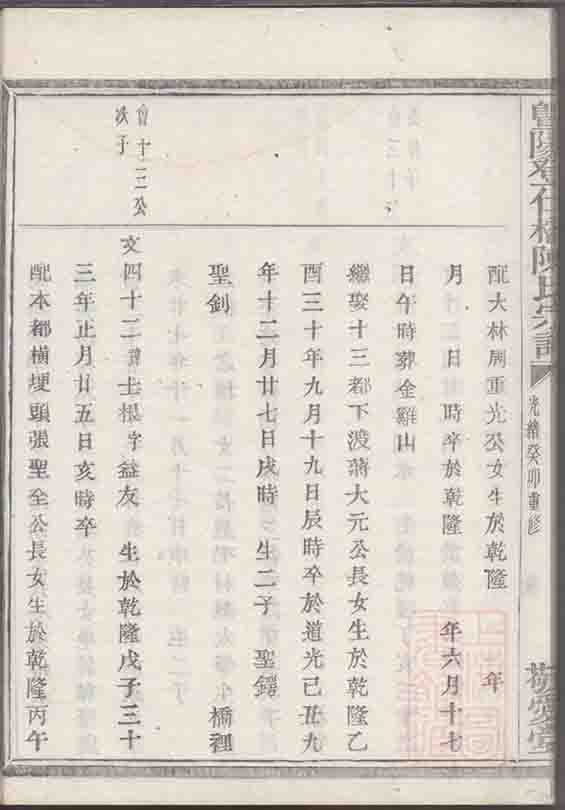 陳氏宗譜
光緒癸卯重修
敬愛堂
配大林周重光公女生於乾隆 年
月 日 時卒於乾隆 年六月十七
日午時葬金雞山
繼娶十三都下渡蔣大元公長女生於乾隆乙
酉三十年九月十九日辰時卒於道光己丑九
年十二月廿七日戌時 生二子 聖鍔 橋裡
聖釗
曾十三公
次子
文四十二 士根字益友 生於乾隆戊子三十
三年正月廿五日亥時卒
配本都橫埂頭張聖全公長女生於乾隆丙午